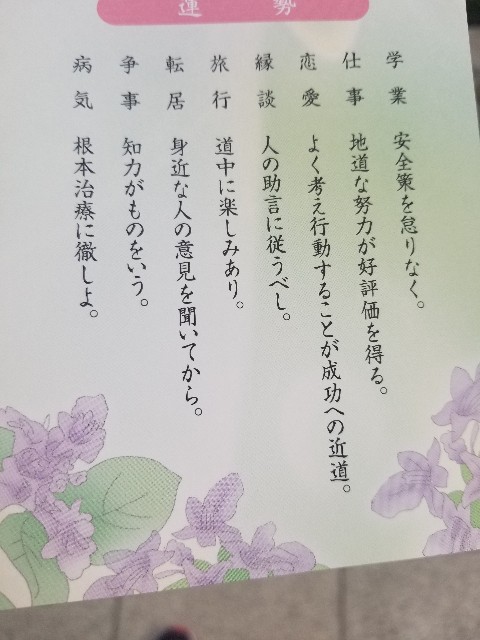 運勢
学業 安全策を怠りなく。
仕事 地道な努力が好評価を得る。
恋愛 よく考え行動することが成功への近道。
縁談 人の助言に従うべし。
旅行 道中に楽しみあり。
転居 身近な人の意見を聞いてから。
争事 知力がものをいう。
病気 根本治療に徹しよ。